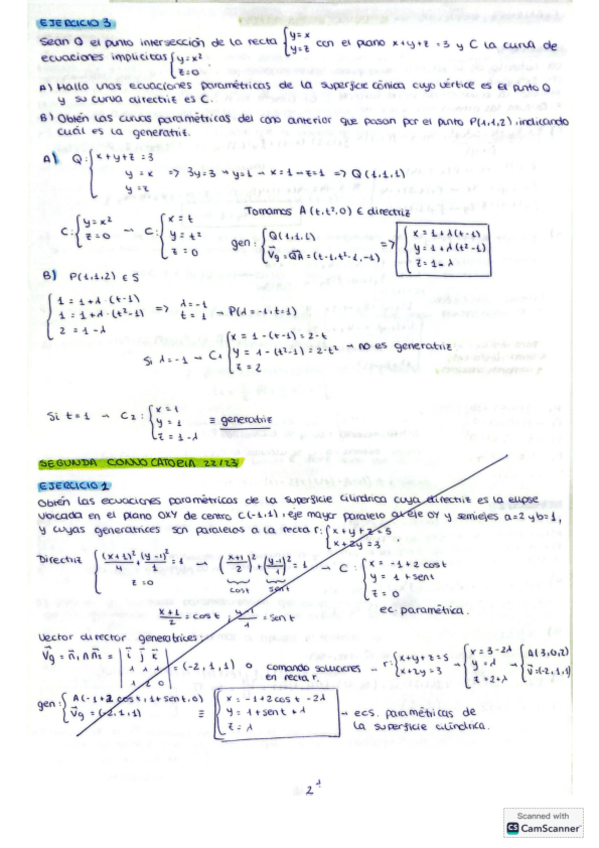 EJERCICIO 3
Sean Q el punto intersección de la recta {y=x con el plano x+y+z=3 y C la curva de
y=z
ecuaciones implícitas {y=x²
z=0.
A) Halla unas ecuaciones paramétricas de la superficie cónica cuyo vértice es el punto Q
y su curva directriz es C.
B) Obtén las curvas paramétricas del cono anterior que pasan por el punto P(1,1,2), indicando
cuál es la generatriz.
A) Q: {x+y+z=3
y=x => 3y=3 → y=1 → x=1 → z=1 => Q(1,1,1)
y=z
Tomamos A(t,t²,0) ∈ directriz
C: {y=x² → C: {x=t
z=0 y=t²
z=0
gen: {Q(1,1,1)
Vg=QA=(t-1,t²-1,-1)
=> {x=1+λ(t-1)
y=1+λ(t²-1)
z=1-λ
B) P(1,1,2) ∈ S
{1=1+λ·(t-1)
1=1+λ·(t²-1) => λ=-1
t=1 → P(λ=-1,t=1)
2=1-λ
Si λ=-1 → C1 {x=1-(t-1)=2-t
y=1-(t²-1)=2-t² → no es generatriz
z=2
Si t=1 → C2: {x=1
y=1 ≡ generatriz
z=1-λ
SEGUNDA CONVOCATORIA 22/23
EJERCICIO 1
Obtén las ecuaciones paramétricas de la superficie cilíndrica cuya directriz es la elipse
ubicada en el plano OXY de centro C(-1,1), eje mayor paralelo al eje OY y semiejes a=2 y b=1,
y cuyas generatrices son paralelas a la recta r: {x+y+z=5
x+2y=3
Directriz {(x+1)²/4 + (y-1)²/1 = 1 → ((x+1)/2)² + ((y-1)/1)² = 1 → C: {x=-1+2cost
z=0 cost sent y=1+sent
z=0
(x+1)/2 = cost ; (y-1)/1 = sent
ec. paramétrica.
Vector director generatrices:
Vg = n1 ∧ n2 = |i j k
1 1 1
1 2 0| = (-2,1,1) o tomando soluciones en recta r. → r: {x+y+z=5
x+2y=3 → {x=3-2λ
y=λ
z=2+λ → {A(3,0,2)
v=(-2,1,1)
gen: {A(-1+2cost,1+sent,0)
Vg=(-2,1,1) ≡ {x=-1+2cost-2λ
y=1+sent+λ
z=λ
→ ecs. paramétricas de
la superficie cilíndrica.
2
Scanned with
CS CamScanner